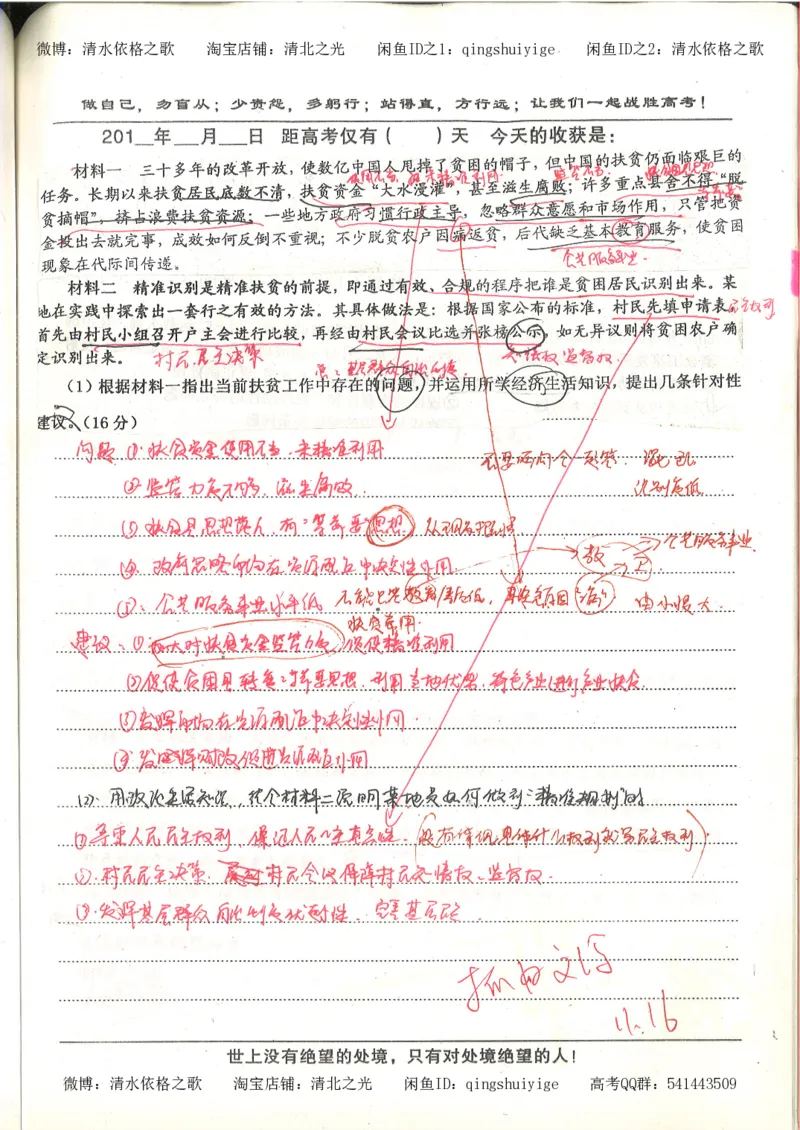 微博：清水依格之歌 淘宝店铺：清北之光 闲鱼ID之1：qingshuiyige 闲鱼ID之2：清水依格之歌
做自己，勿盲从；少责怨，多躬行；站得直，方行远；让我们一起战胜高考！
201__年___月___日 距高考仅有（ ）天 今天的收获是：
材料一 三十多年的改革开放，使数亿中国人甩掉了贫困的帽子，但中国的扶贫仍面临艰巨的
任务。长期以来扶贫居民底数不清，扶贫资金“大水漫灌”，甚至滋生腐败；许多重点县舍不得“脱
贫摘帽”，挤占浪费扶贫资源；一些地方政府习惯行政主导，忽略群众意愿和市场作用，只管把资
金投出去就完事，成效如何反倒不重视；不少脱贫农户因病返贫，后代缺乏基本教育服务，使贫困
现象在代际间传递。
公共服务事业.
材料二 精准识别是精准扶贫的前提，即通过有效、合规的程序把谁是贫困居民识别出来。某
地在实践中探索出一套行之有效的方法。其具体做法是：根据国家公布的标准，村民先填申请表。
首先由村民小组召开户主会进行比较，再经由村民会议比选并张榜公示，如无异议则将贫困农户确
定识别出来。 村民民主决策 知情权 监督权.
（1）根据材料一指出当前扶贫工作中存在的问题，并运用所学经济生活知识，提出几条针对性
建议。（16分）
问题 ①扶贫资金使用不当，未精准利用
②监管力度不够，滋生腐败.
识别度低
③扶贫县思想落人，有“等靠要”思想.
④政府忽略市场在资源配置中决定性作用.
教 → 公共服务事业.
⑤、公共服务事业水平低
由小慢大
建议：①加大对扶贫资金监管力度，促使精准利用
②促使贫困县转变“等靠要”思想，利用当地优势，特色产业进行产业扶贫
③发挥市场在资源配置中决定性作用.
(2)、用政治生活知识，结合材料二说明某地是如何做到“精准识别”的
①尊重人民民主权利，保证人民当家作主. (没有详细具体什么权利就写民主权利).
②、村民民主决策. 村民会议保障村民知情权、监督权.
11.16
世上没有绝望的处境，只有对处境绝望的人！
微博：清水依格之歌 淘宝店铺：清北之光 闲鱼ID：qingshuiyige 高考QQ群：541443509